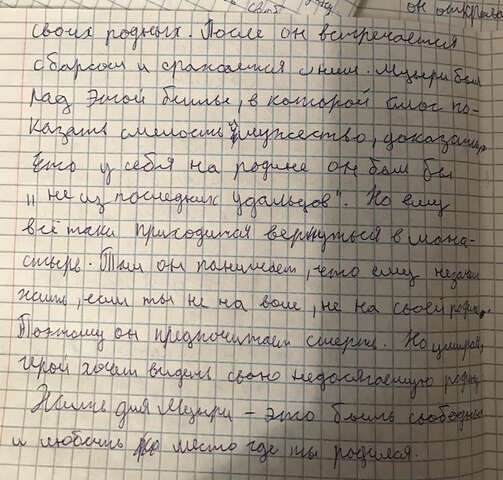 он открыл
своих родных. После он встречается
с барсом и сражается с ним. Мцыри был
рад этой битве, в которой смог по-
казать смелость и мужество, доказать,
что у себя на родине он был бы
"не из последних удальцов". Но ему
всё таки приходится вернуться в мона-
стырь. Там он понимает, что ему незачем
жить, если ты не на воле, не на своей родине.
Поэтому он предпочитает смерть. Но умирая,
герой хочет видеть свою недосягаемую родину
Жить для Мцыри - это быть свободным
и любить то место где ты родился.